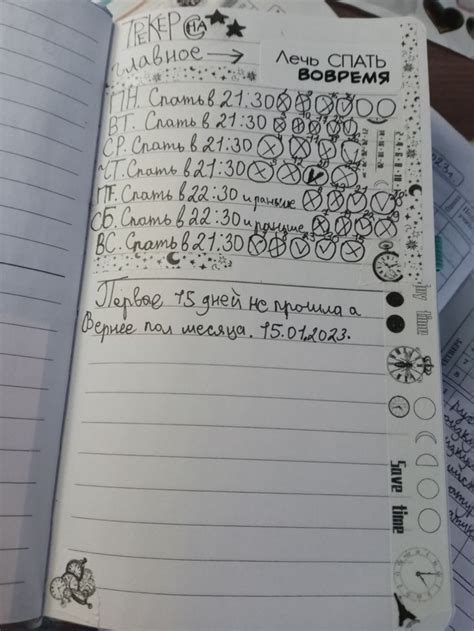 ТРЕКЕР НА
главное → Лечь СПАТЬ
ВОВРЕМЯ
ПН. Спать в 21:30
ВТ. Спать в 21:30
СР. Спать в 21:30
ЧТ. Спать в 21:30
ПТ. Спать в 22:30 и раньше
СБ. Спать в 22:30 и раньше
ВС. Спать в 21:30
Первое 15 дней не прошла а
Вернее пол месяца. 15.01.2023.
joy time
Save time